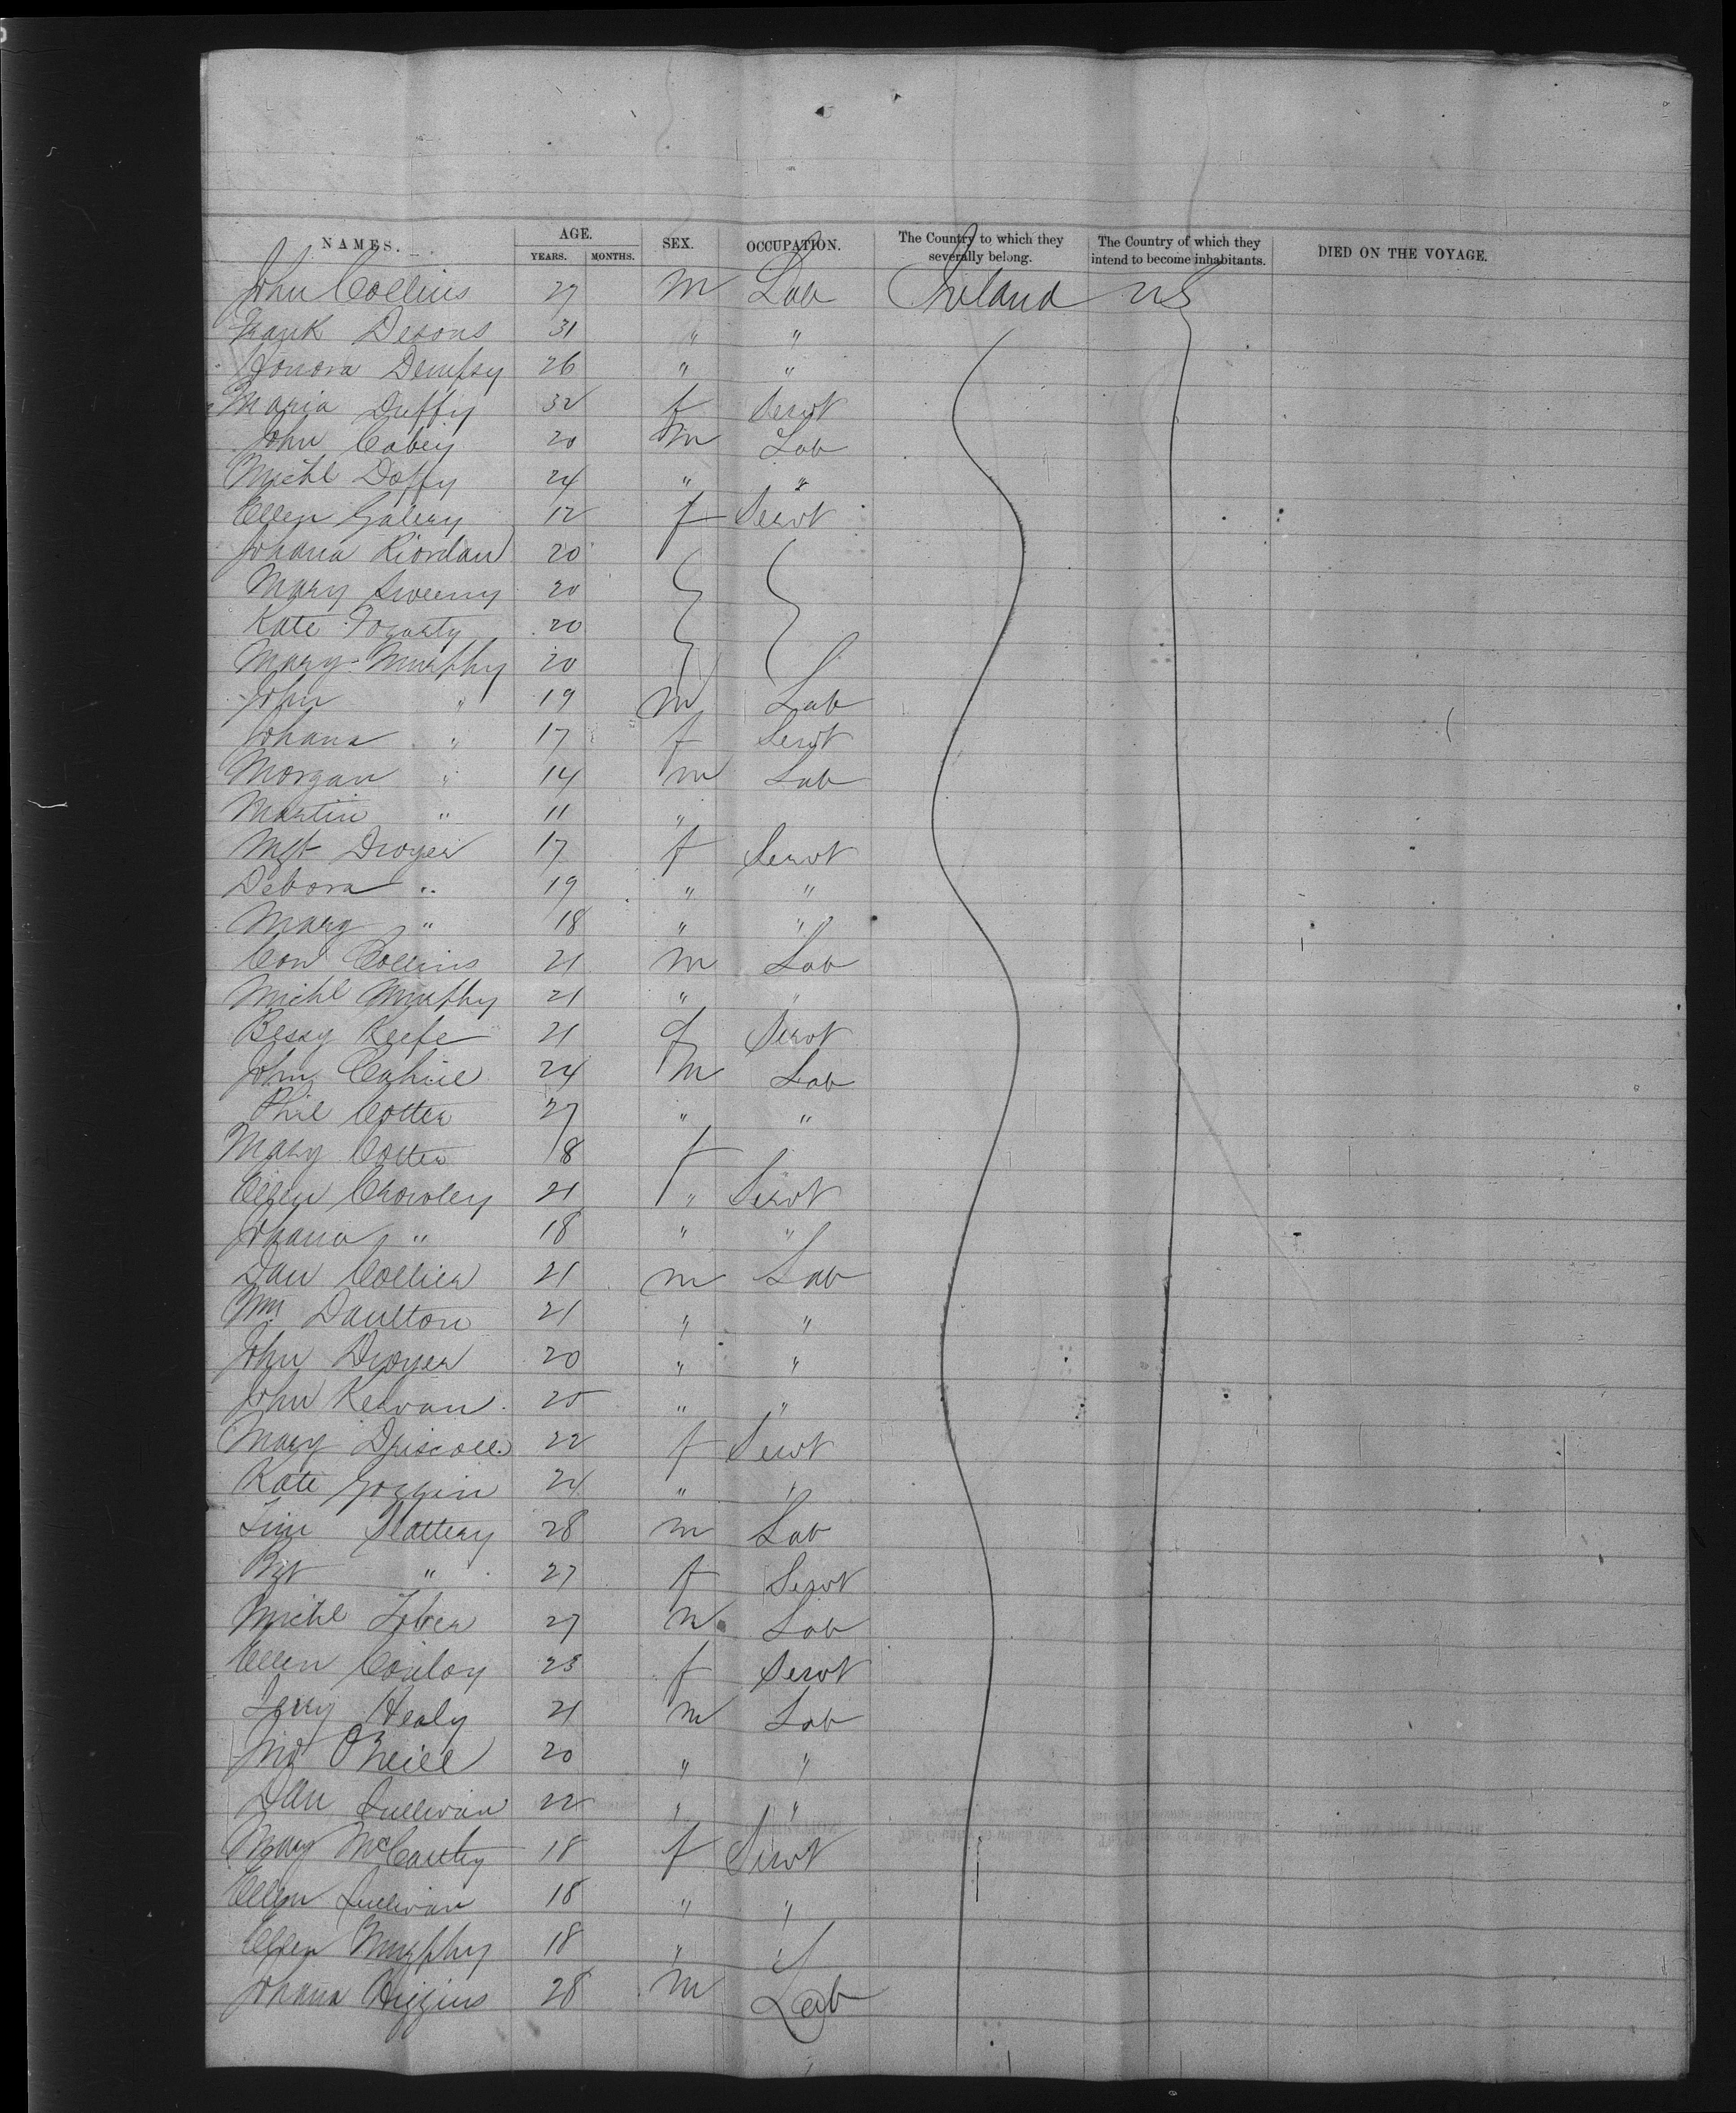 NAMES. AGE. SEX. OCCUPATION. The Country to which they severally belong. The Country of which they intend to become inhabitants. DIED ON THE VOYAGE.
YEARS. MONTHS.
John Collins 27 m Lab Ireland US
Frank Desons 31 " "
Honora Dempsy 26 " "
Maria Duffy 32 f Servt
John Cabey 20 m Lab
Michl Doffy 24 " "
Ellen Galery 12 f Servt
Johana Riordan 20
Mary Sweeny 20
Kate Fogarty 20
Mary Murphy 20
John " 19 m Lab
Johana " 17 f Servt
Morgan " 14 m Lab
Martin " 11 "
Mgt Dwyer 17 f Servt
Debora " 19 " "
Mary " 18 " "
Con Collins 21 m Lab
Michl Murphy 21 " "
Bessy Keefe 21 f Servt
John Cahill 24 m Lab
Phil Cotter 27 " "
Mary Cotter 18 f
Ellen Crowley 21 " Servt
Johana " 18 " "
Dan Collier 21 m Lab
Wm Daulton 21 " "
John Dwyer 20 " "
John Kerwan 25 " "
Mary Driscoll 22 f Servt
Kate Goggin 24 " "
Tim Slattery 28 m Lab
Bgt " 27 f Servt
Michl 27 m Lab
Ellen Conloy 23 f Servt
Jerry Healy 21 m Lab
O'Neill 20 " "
Dan Sullivan 22 " "
Mary McCarthy 18 f Servt
Ellen Sullivan 18 " "
Ellen Murphy 18 " "
Johana Higgins 28 m Lab